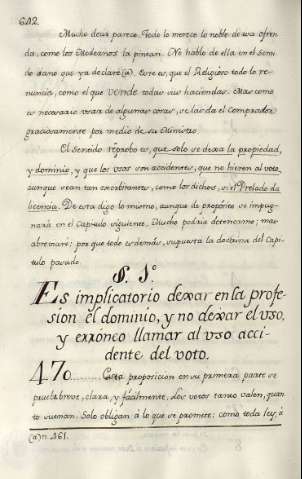 642
Mucho decir parece. Todo lo merece lo noble de esa ofren
da, como los Modernos la pintan. No hablo de ella en el Sen
do sano que ya declaré (a). Este es, que el Religioso todo lo re
nuncia, como el que vende todas sus haciendas. Mas como
es necesario usar de algunas cosas, se las da el Comprador
graciosamente por medio de su Ministro.
El Sentido réprobo es, que solo se dexa la propiedad,
y dominio, y que los usos son accidentes, que no hieren al voto,
aunque sean tan exorbitantes, como los dichos, si el Prelado da
licencia. De esta digo lo mismo, aunque de propósito se impug
nará en el Capitulo siguiente. Mucho podria detenerme; mas
abreviaré: por que todo es demás, supuesta la doctrina del Capi
tulo pasado.
§. 1º
Es implicatorio dexar en la profe-
sion el dominio, y no dexar el uso,
y erróneo llamar al uso acci-
dente del voto.
470......... Esta proposicion en su primera parte se
prueba breve, clara, y facilmente. Los votos tanto valen, quan
to suenan. Solo obligan á lo que se promete; como toda ley, á
(a) n. 461.